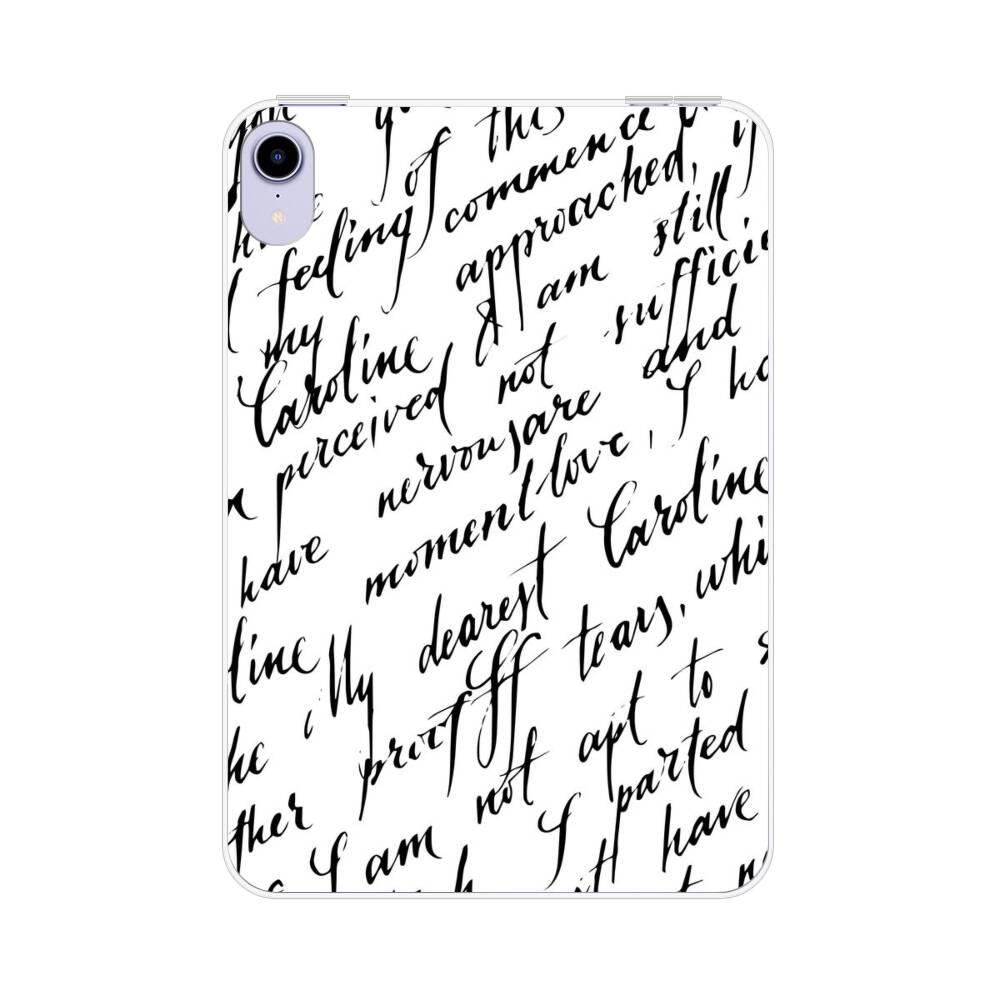 you of this
feeling commence
my approached, if
Caroline & am still
perceived not sufficie
have nervous are and
moment love, I ha
line My dearest Caroline
he proof ff tears, whi
ther not apt to s
I am I parted
it have